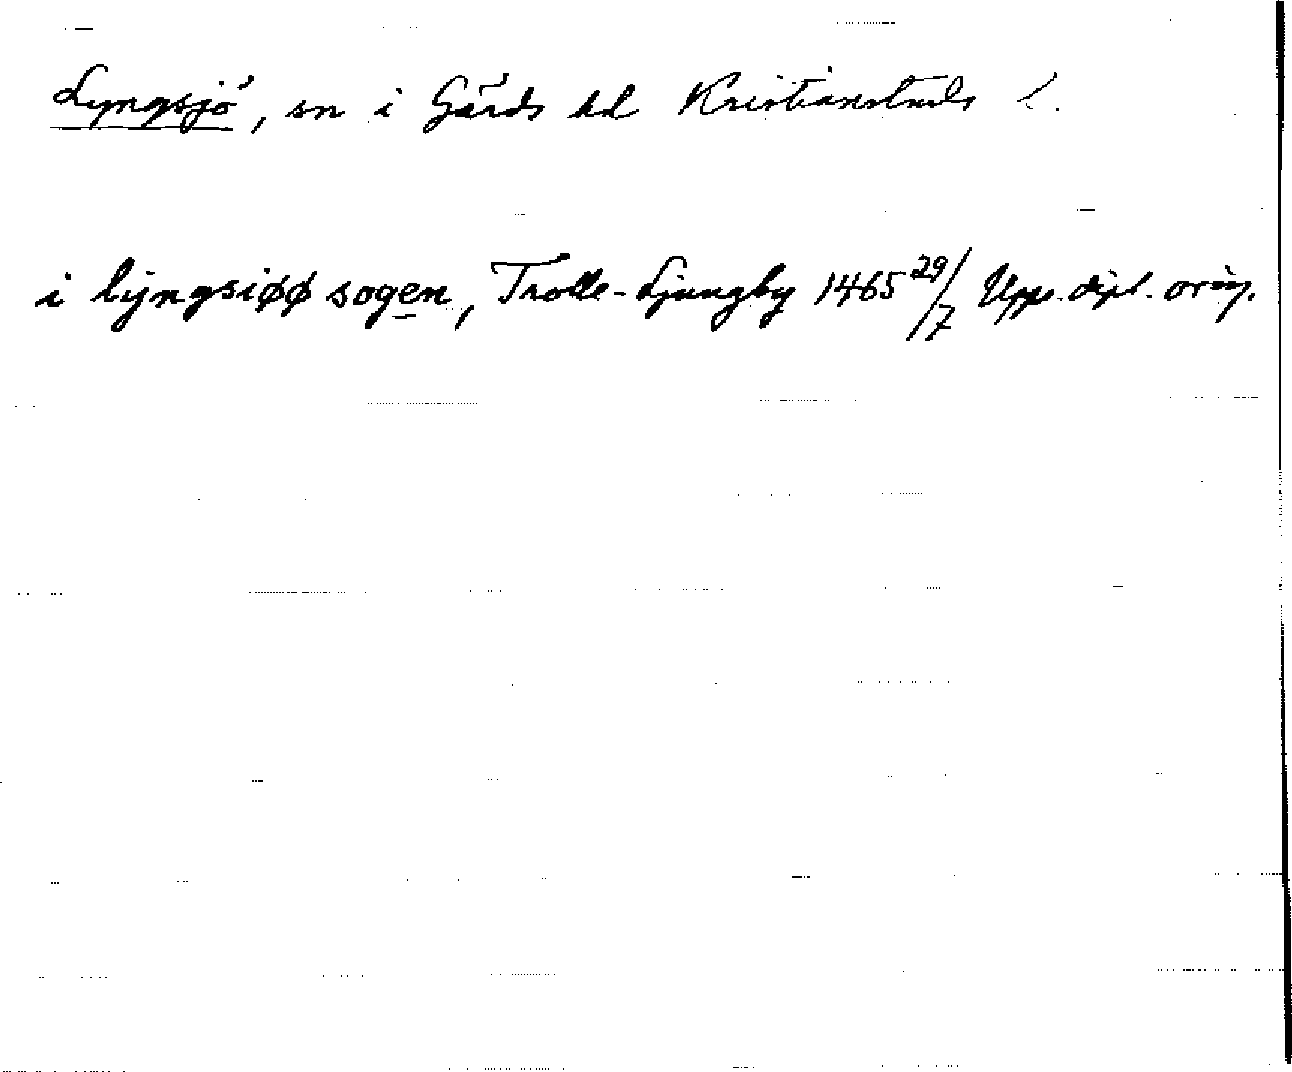 Lyngsjö, sn i Gärds hd Kristianstads l.
i lÿngsiøø sogen, Trolle-Ljungby 1465 29/7 Upps. dipl. orig.